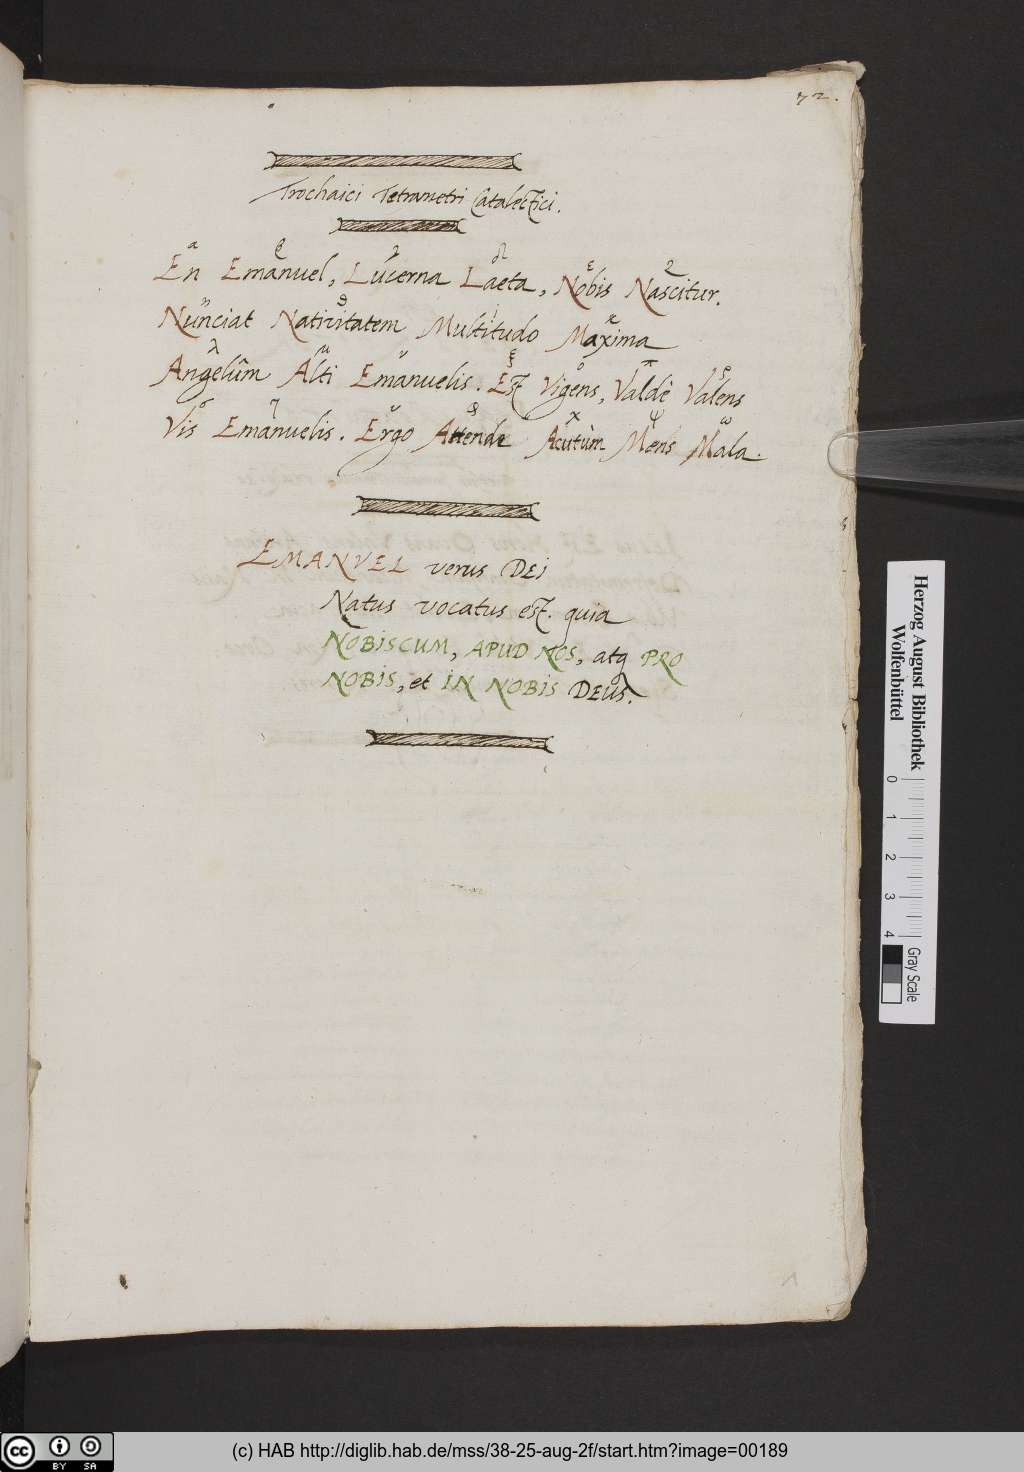 72.
Trochaici Tetrametri Catalectici.
En Emanuel, Lucerna Laeta, Nobis Nascitur.
Nunciat Nativitatem Multitudo Maxima
Angelûm Alti Emanuelis. Est Vigens, Valdè Valens
Vis Emanuelis. Ergo Attende Acutùm Mens Mala.
EMANVEL verus DEI
Natus vocatus est. quia
NOBISCUM, APUD NOS, atq PRO
NOBIS, et IN NOBIS DEUS.
Herzog August Bibliothek
Wolfenbüttel
0 1 2 3 4
Gray Scale
cc BY SA
(c) HAB http://diglib.hab.de/mss/38-25-aug-2f/start.htm?image=00189